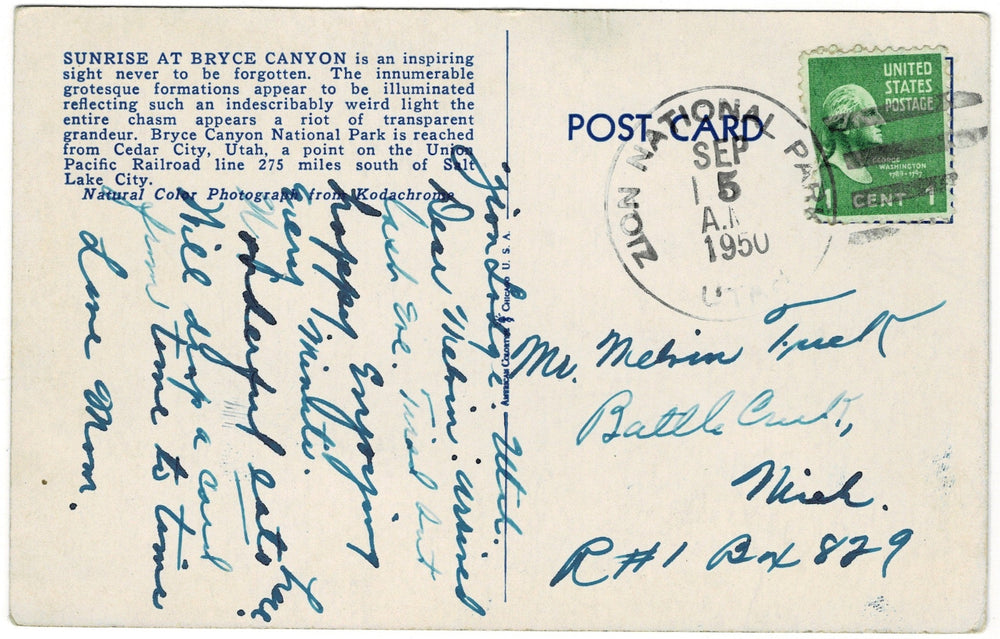 SUNRISE AT BRYCE CANYON is an inspiring
sight never to be forgotten. The innumerable
grotesque formations appear to be illuminated
reflecting such an indescribably weird light the
entire chasm appears a riot of transparent
grandeur. Bryce Canyon National Park is reached
from Cedar City, Utah, a point on the Union
Pacific Railroad line 275 miles south of Salt
Lake City.
Natural Color Photograph from Kodachrome
Zion Lodge. Utah.
Dear Melvin. arrived
last Eve. Tired but
happy Enjoying
Every Minute.
Wonderful eats here
Will drop a card
from time to time
Love Mom.
POST CARD
ZION NATIONAL PARK
SEP
5
A.M
1950
UTAH
UNITED
STATES
POSTAGE
GEORGE
WASHINGTON
1789-1797
1 CENT 1
Mr. Melvin
Battle Creek,
Mich.
R#1 Box 829